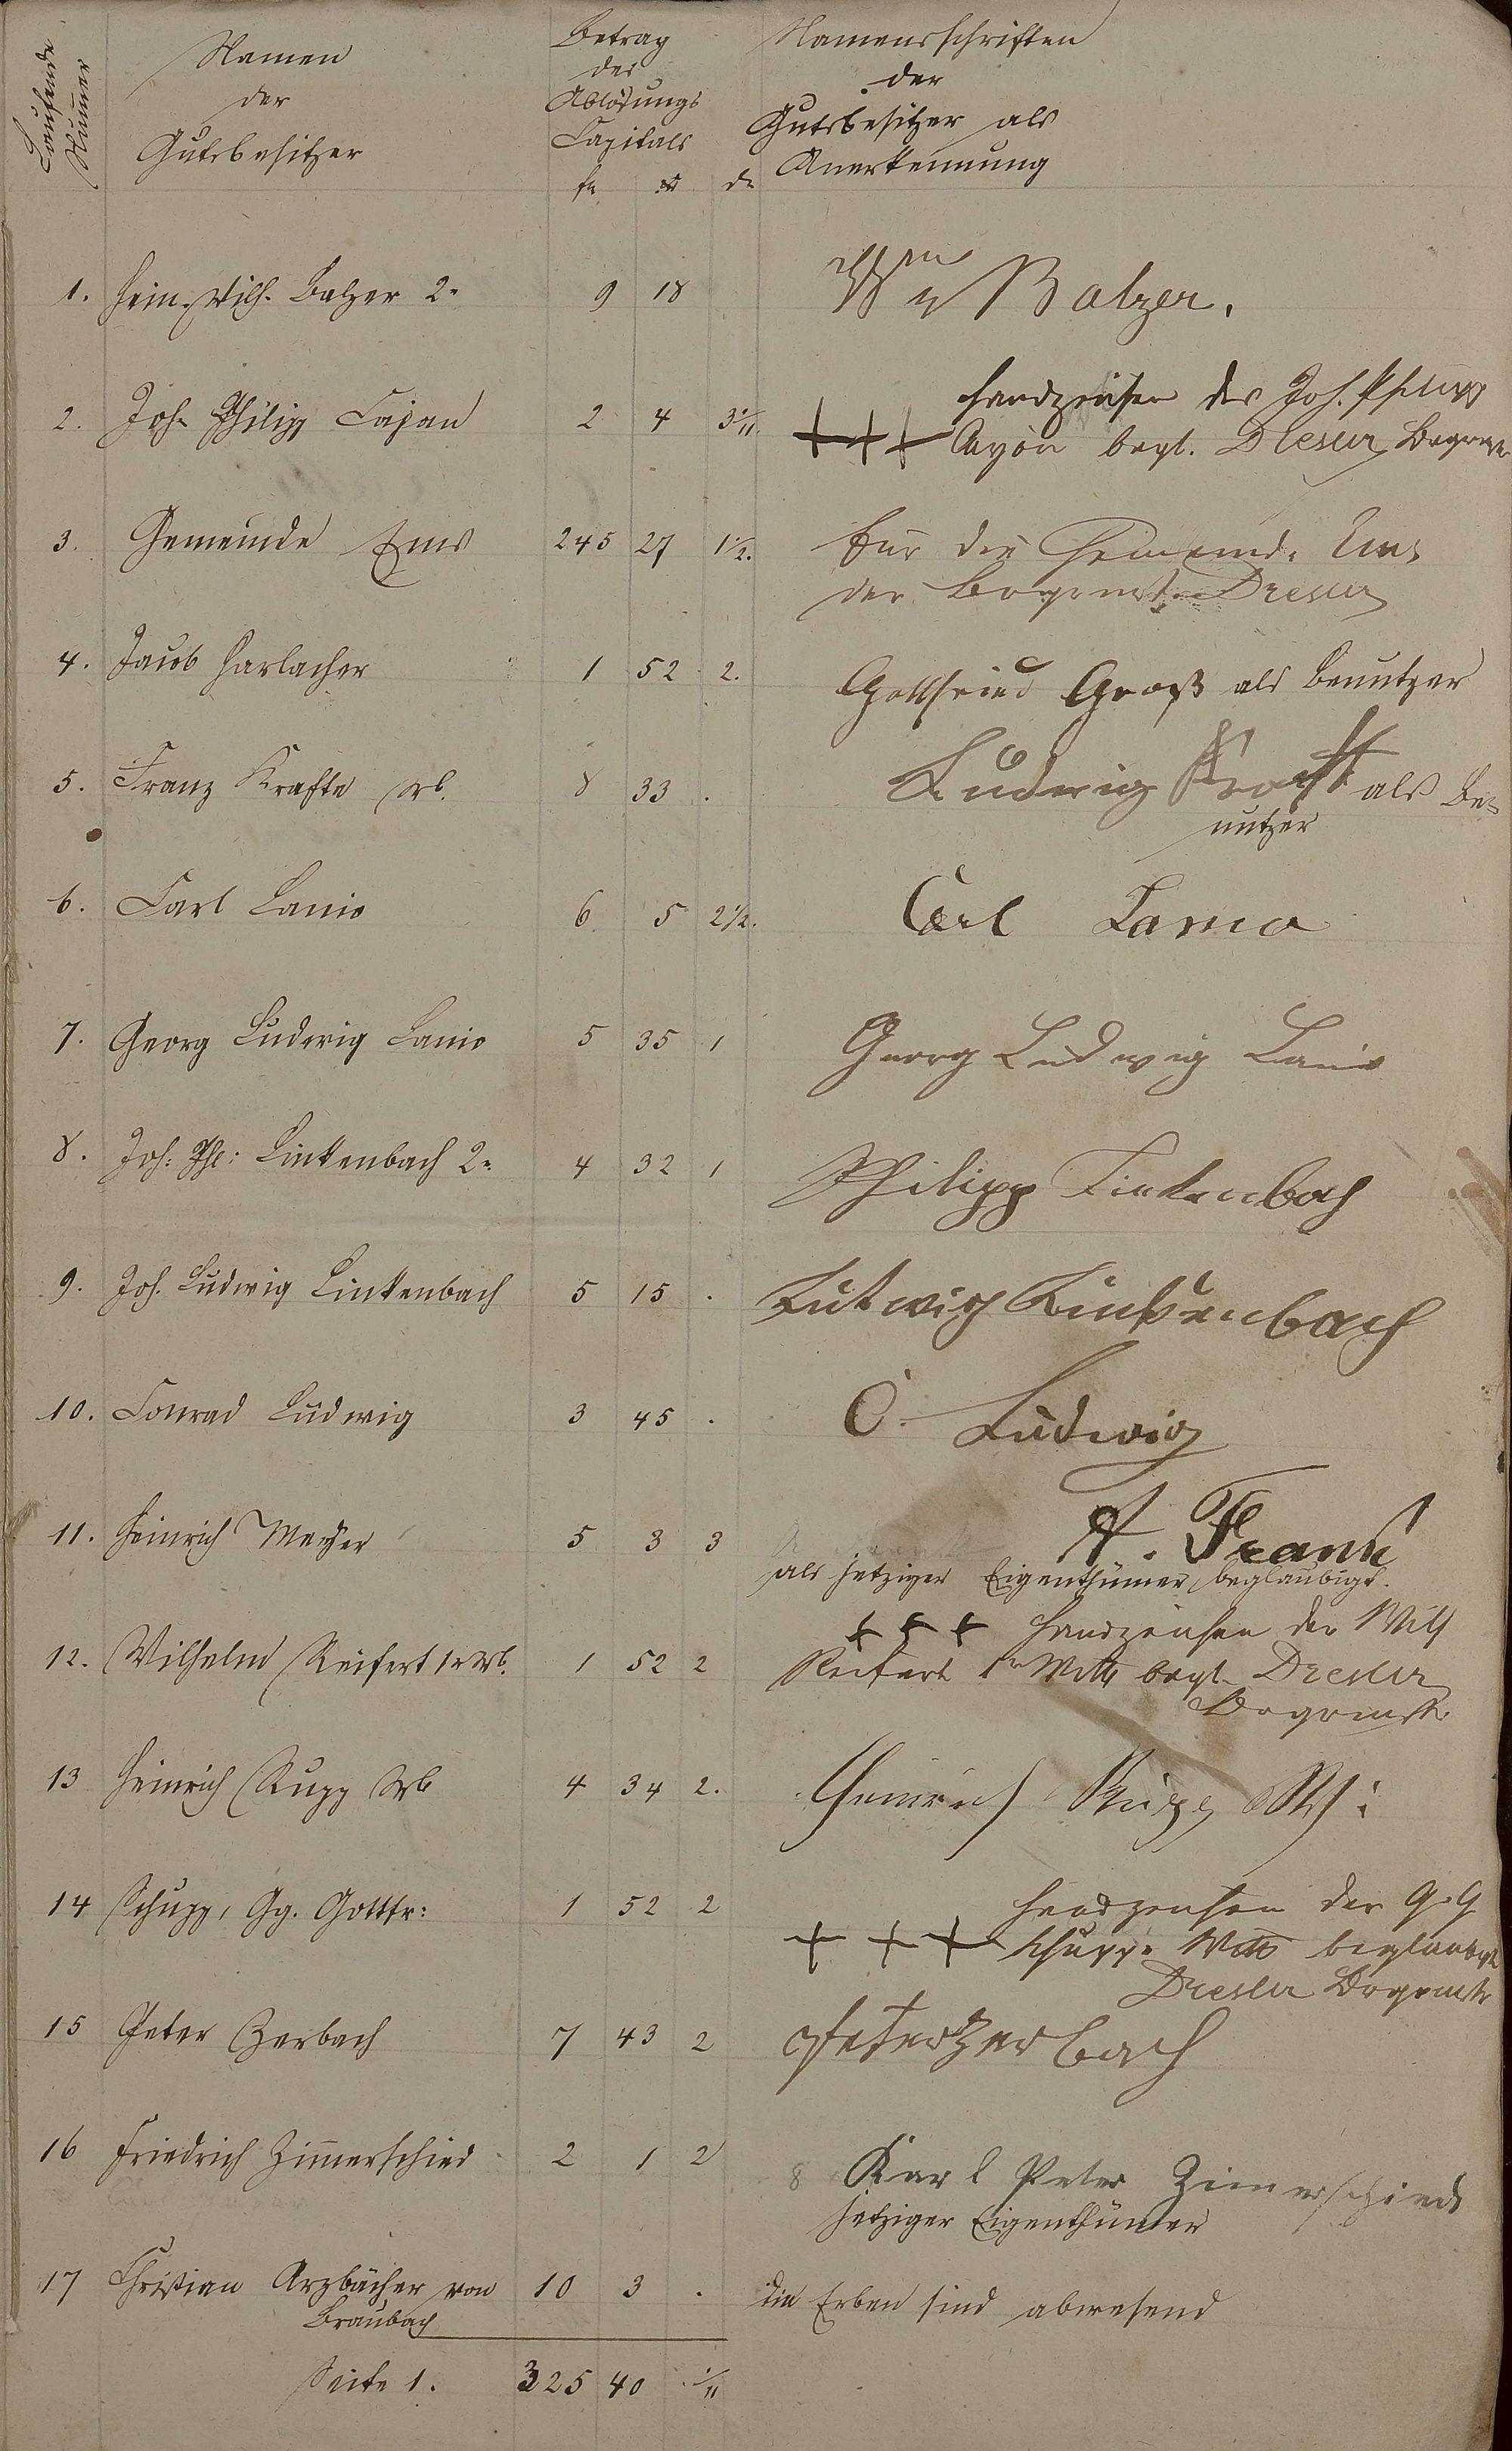 Laufende Nummer
Namen der Gutsbesitzer
Betrag des Ablösungs Capitals
fl. xr. dn
Namensschriften der Gutsbesitzer als Anerkennung
1. Hein. Wilh. Balzer 2r 9 18 Wm Balzer.
2. Joh. Philip Cajan 2 4 3 1/11. Handzeichen des Joh. Philipp
+++ Cayon begl. Dresler Bürgermstr
3. Gemeinde Ems 245 27 1 1/2. Für die Gemeinde Ems
der Bürgermstr Dresler
4. Jacob Harlacher 1 52 2. Gottfried Groß als Benutzer
5. Franz Krafte Wb. 8 33 . Ludwig Kraft als Be-
nutzer
6. Carl Lanio 6 5 2 1/2. Carl Lanio
7. Georg Ludwig Lanio 5 35 1 Georg Ludwig Lanio
8. Joh: Phl: Linkenbach 2r 4 32 1 Philipp Linkenbach
9. Joh. Ludwig Linkenbach 5 15 . Lutwig Linkenbach
10. Conrad Ludwig 3 45 . C. Ludwig
11. Heinrich Meyer 5 3 3 A. Frank
als jetziger Eigenthümer beglaubigt.
12. Wilhelm Reifert 1r Wb. 1 52 2 +++ Handzeichen der Wilh
Reifert 1r Wttb begl. Dresler
Bürgermstr
13 Heinrich Rupp Wb 4 34 2. Heinrich Rupp
14 Schupp, Gg. Gottfr: 1 52 2 Handzeichen der G. G
+++ Schupp Wttb beglaubigt
Dresler Bürgermstr
15 Peter Zerbach 7 43 2 Peter Zerbach
16 Friedrich Zim̄erschied 2 1 2 Karl Peter Zimerschied
jetziger Eigenthümer
17 Christian Arzbächer von 10 3 . die Erben sind abwesend
Braubach
Seite 1. 325 40 1/11